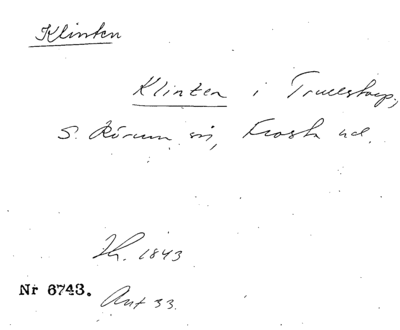 Klinten
Klinten i Truelstorp,
S. Rörum sn, Frosta hd.
1843
Nr 6743.
Ant 33.